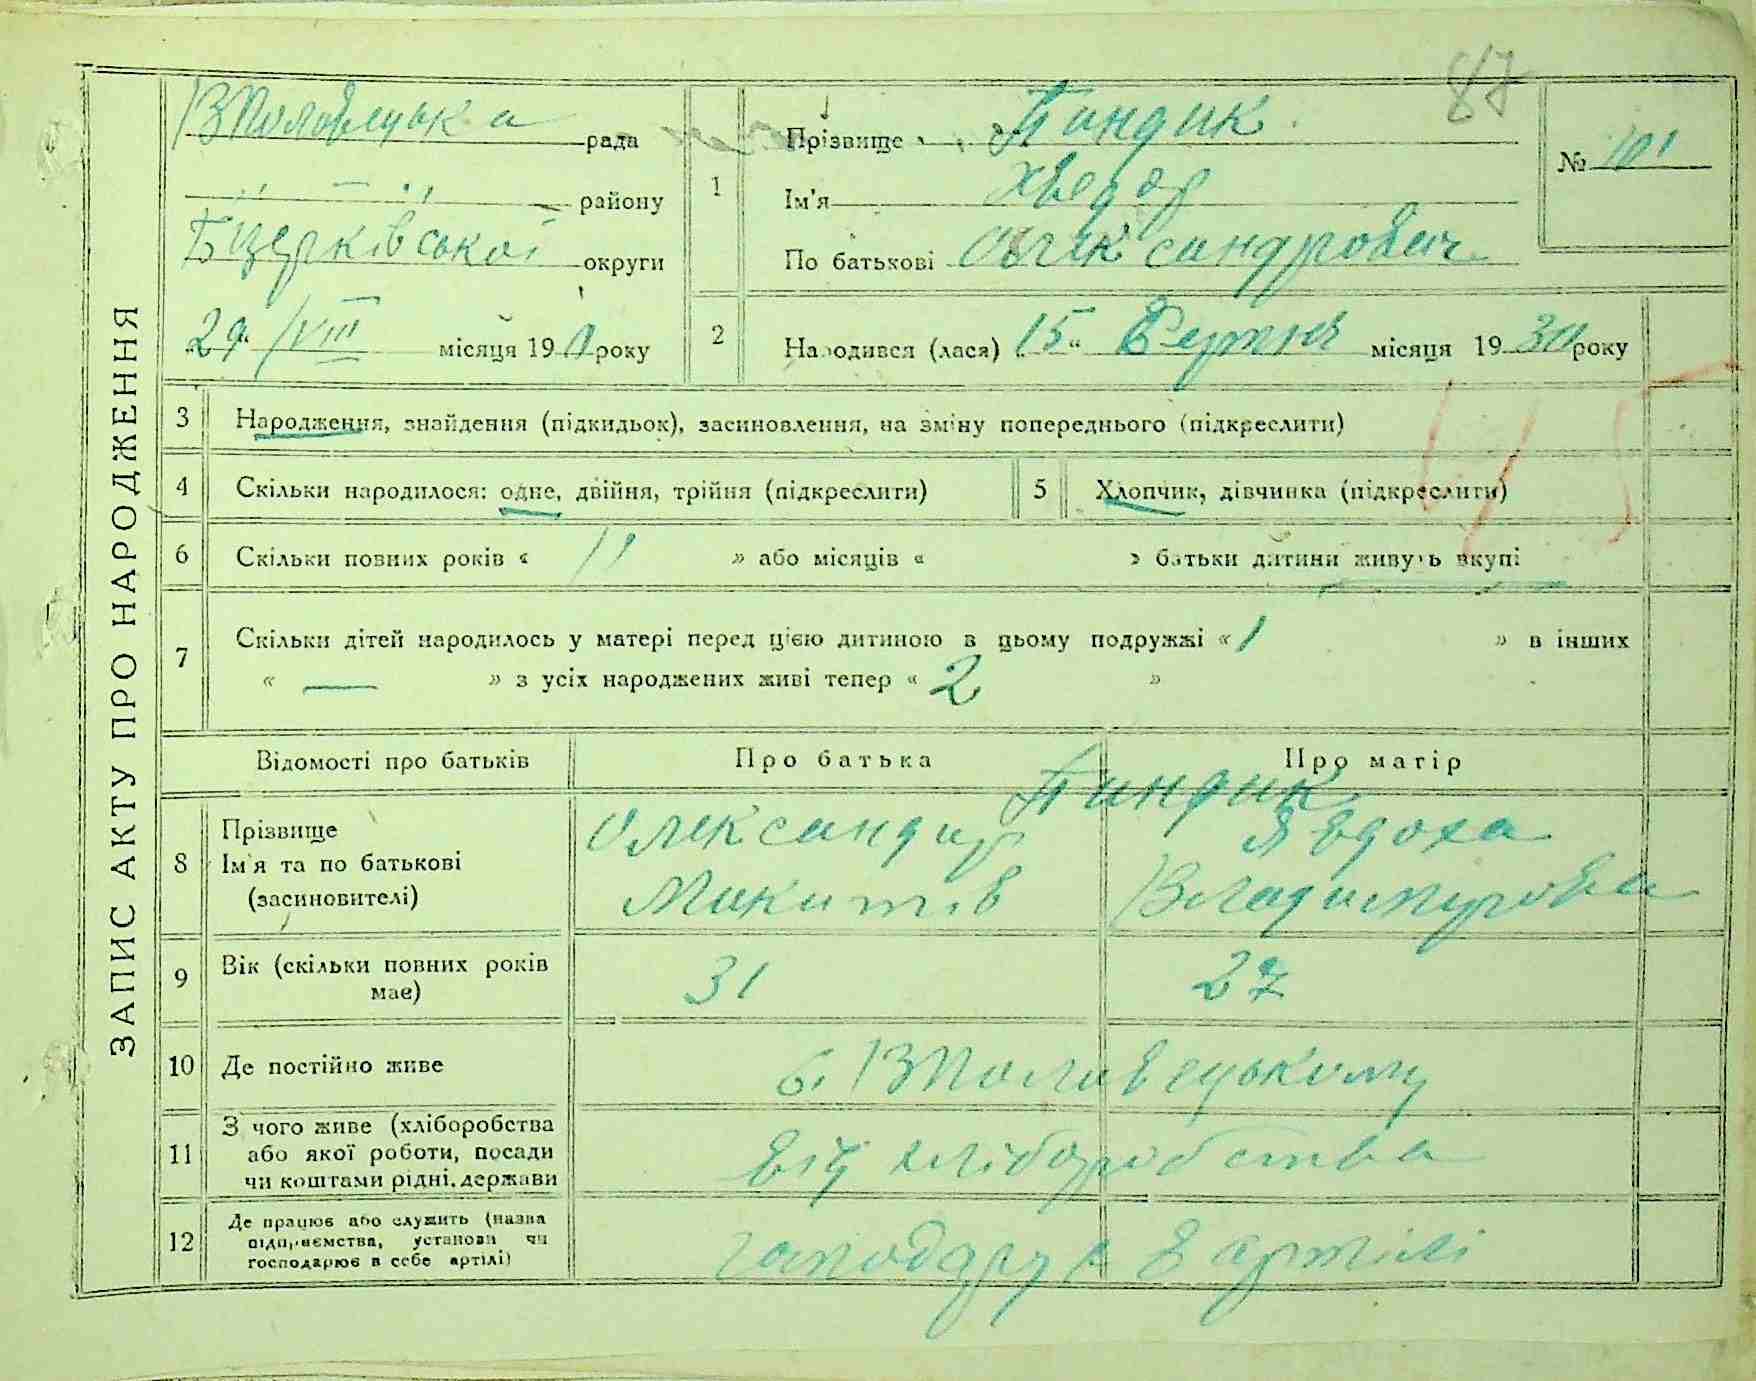 87
ЗАПИС АКТУ ПРО НАРОДЖЕННЯ
ВПоловецька рада
району
Бцерківської округи
„29“ /VIII місяця 19 року
1 Прізвище Пиндик
Ім'я Хведор
По батькові Олександрович
№ 101
2 Народився (лася) „15“ Серпня місяця 1930 року
3 Народження, знайдення (підкидьок), засиновлення, на зміну попереднього (підкреслити)
4 Скільки народилося: одне, двійня, трійня (підкреслити)
5 Хлопчик, дівчинка (підкреслити)
6 Скільки повних років « 11 » або місяців « » батьки дитини живуть вкупі
7 Скільки дітей народилось у матері перед цією дитиною в цьому подружжі « 1 » в інших
« — » з усіх народжених живі тепер « 2 »
Відомості про батьків Про батька Про матір
Пиндик
8 Прізвище
Ім'я та по батькові
(засиновителі)
Олександр
Микитів
Явдоха
Владимирова
9 Вік (скільки повних років
має)
31 27
10 Де постійно живе
с. ВПоловецькому
11 З чого живе (хліборобства
або якої роботи, посади
чи коштами рідні, держави
від хліборобства
12 Де працює або служить (назва
підприємства, установи чи
господарює в себе артілі)
господарує в артілі